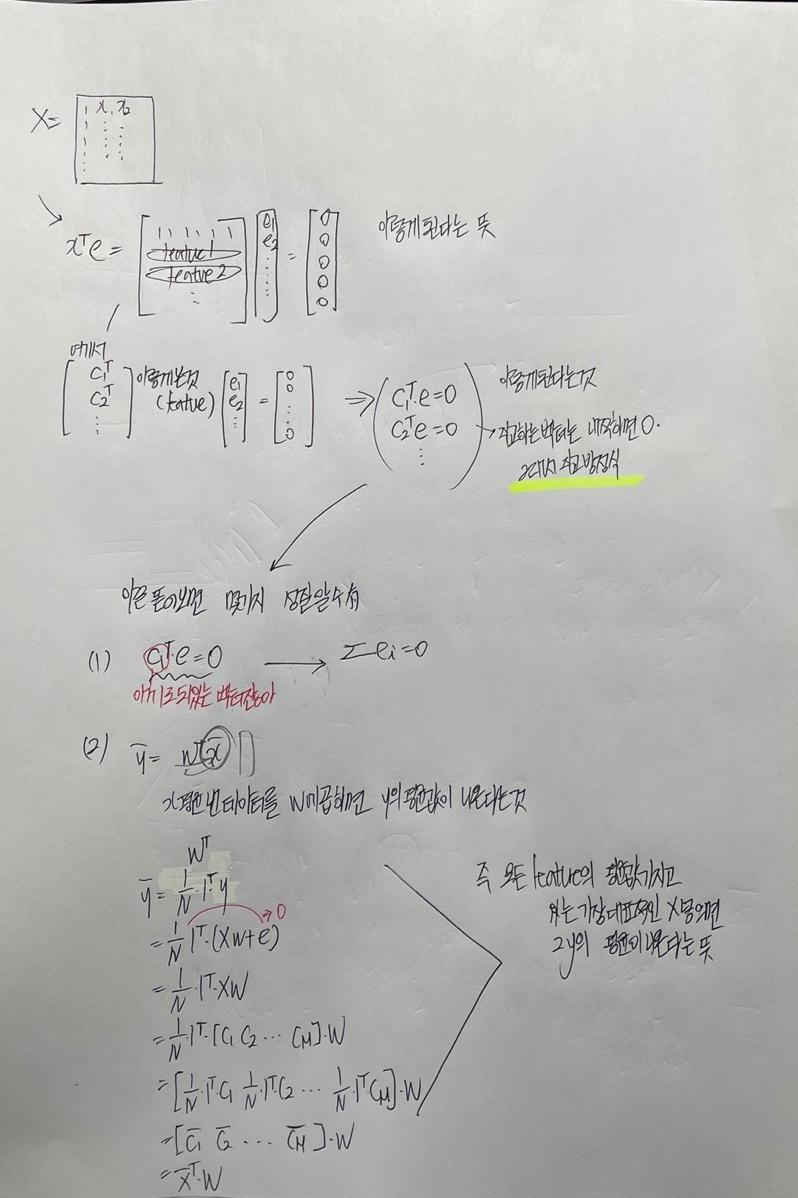 X= 1 x₁ x₂
xᵀe = [1 1 1 1 1 featue1 featue2 ⋮] [e₁ e₂ ⋮] = [0 0 0 0 0] 이렇게된다는 뜻
여기서
[c₁ᵀ c₂ᵀ ⋮] 이렇게본것 (featue) [e₁ e₂ ⋮] = [0 0 ⋮ 0] ⇒ (c₁ᵀ·e=0 c₂ᵀe=0 ⋮) 이렇게된다는것
→ 직교하는벡터는 내적하면 0.
그래서 직교방정식
이를 풀어보면 몇가지 성질알수有
(1) c₁ᵀ·e=0 → Σeᵢ=0
(2) ȳ = wᵀx̄
x평균낸데이터를 w에곱하면 y의 평균값이 나온다는것
wᵀ
ȳ = 1/N 1ᵀy
= 1/N 1ᵀ·(Xw+e) → 0
= 1/N·1ᵀ·XW
= 1/N·1ᵀ·[c₁ c₂ ⋯ c_M]·W
= [1/N·1ᵀ·c₁ 1/N·1ᵀc₂ ⋯ 1/N·1ᵀc_M]·W
= [c̄₁ c̄₂ ⋯ c̄_M]·W
= x̄ᵀ·W
즉 모든 feature의 평균값가지고
있는가장대표적인 X넣으면
그y의 평균이나온다는 뜻